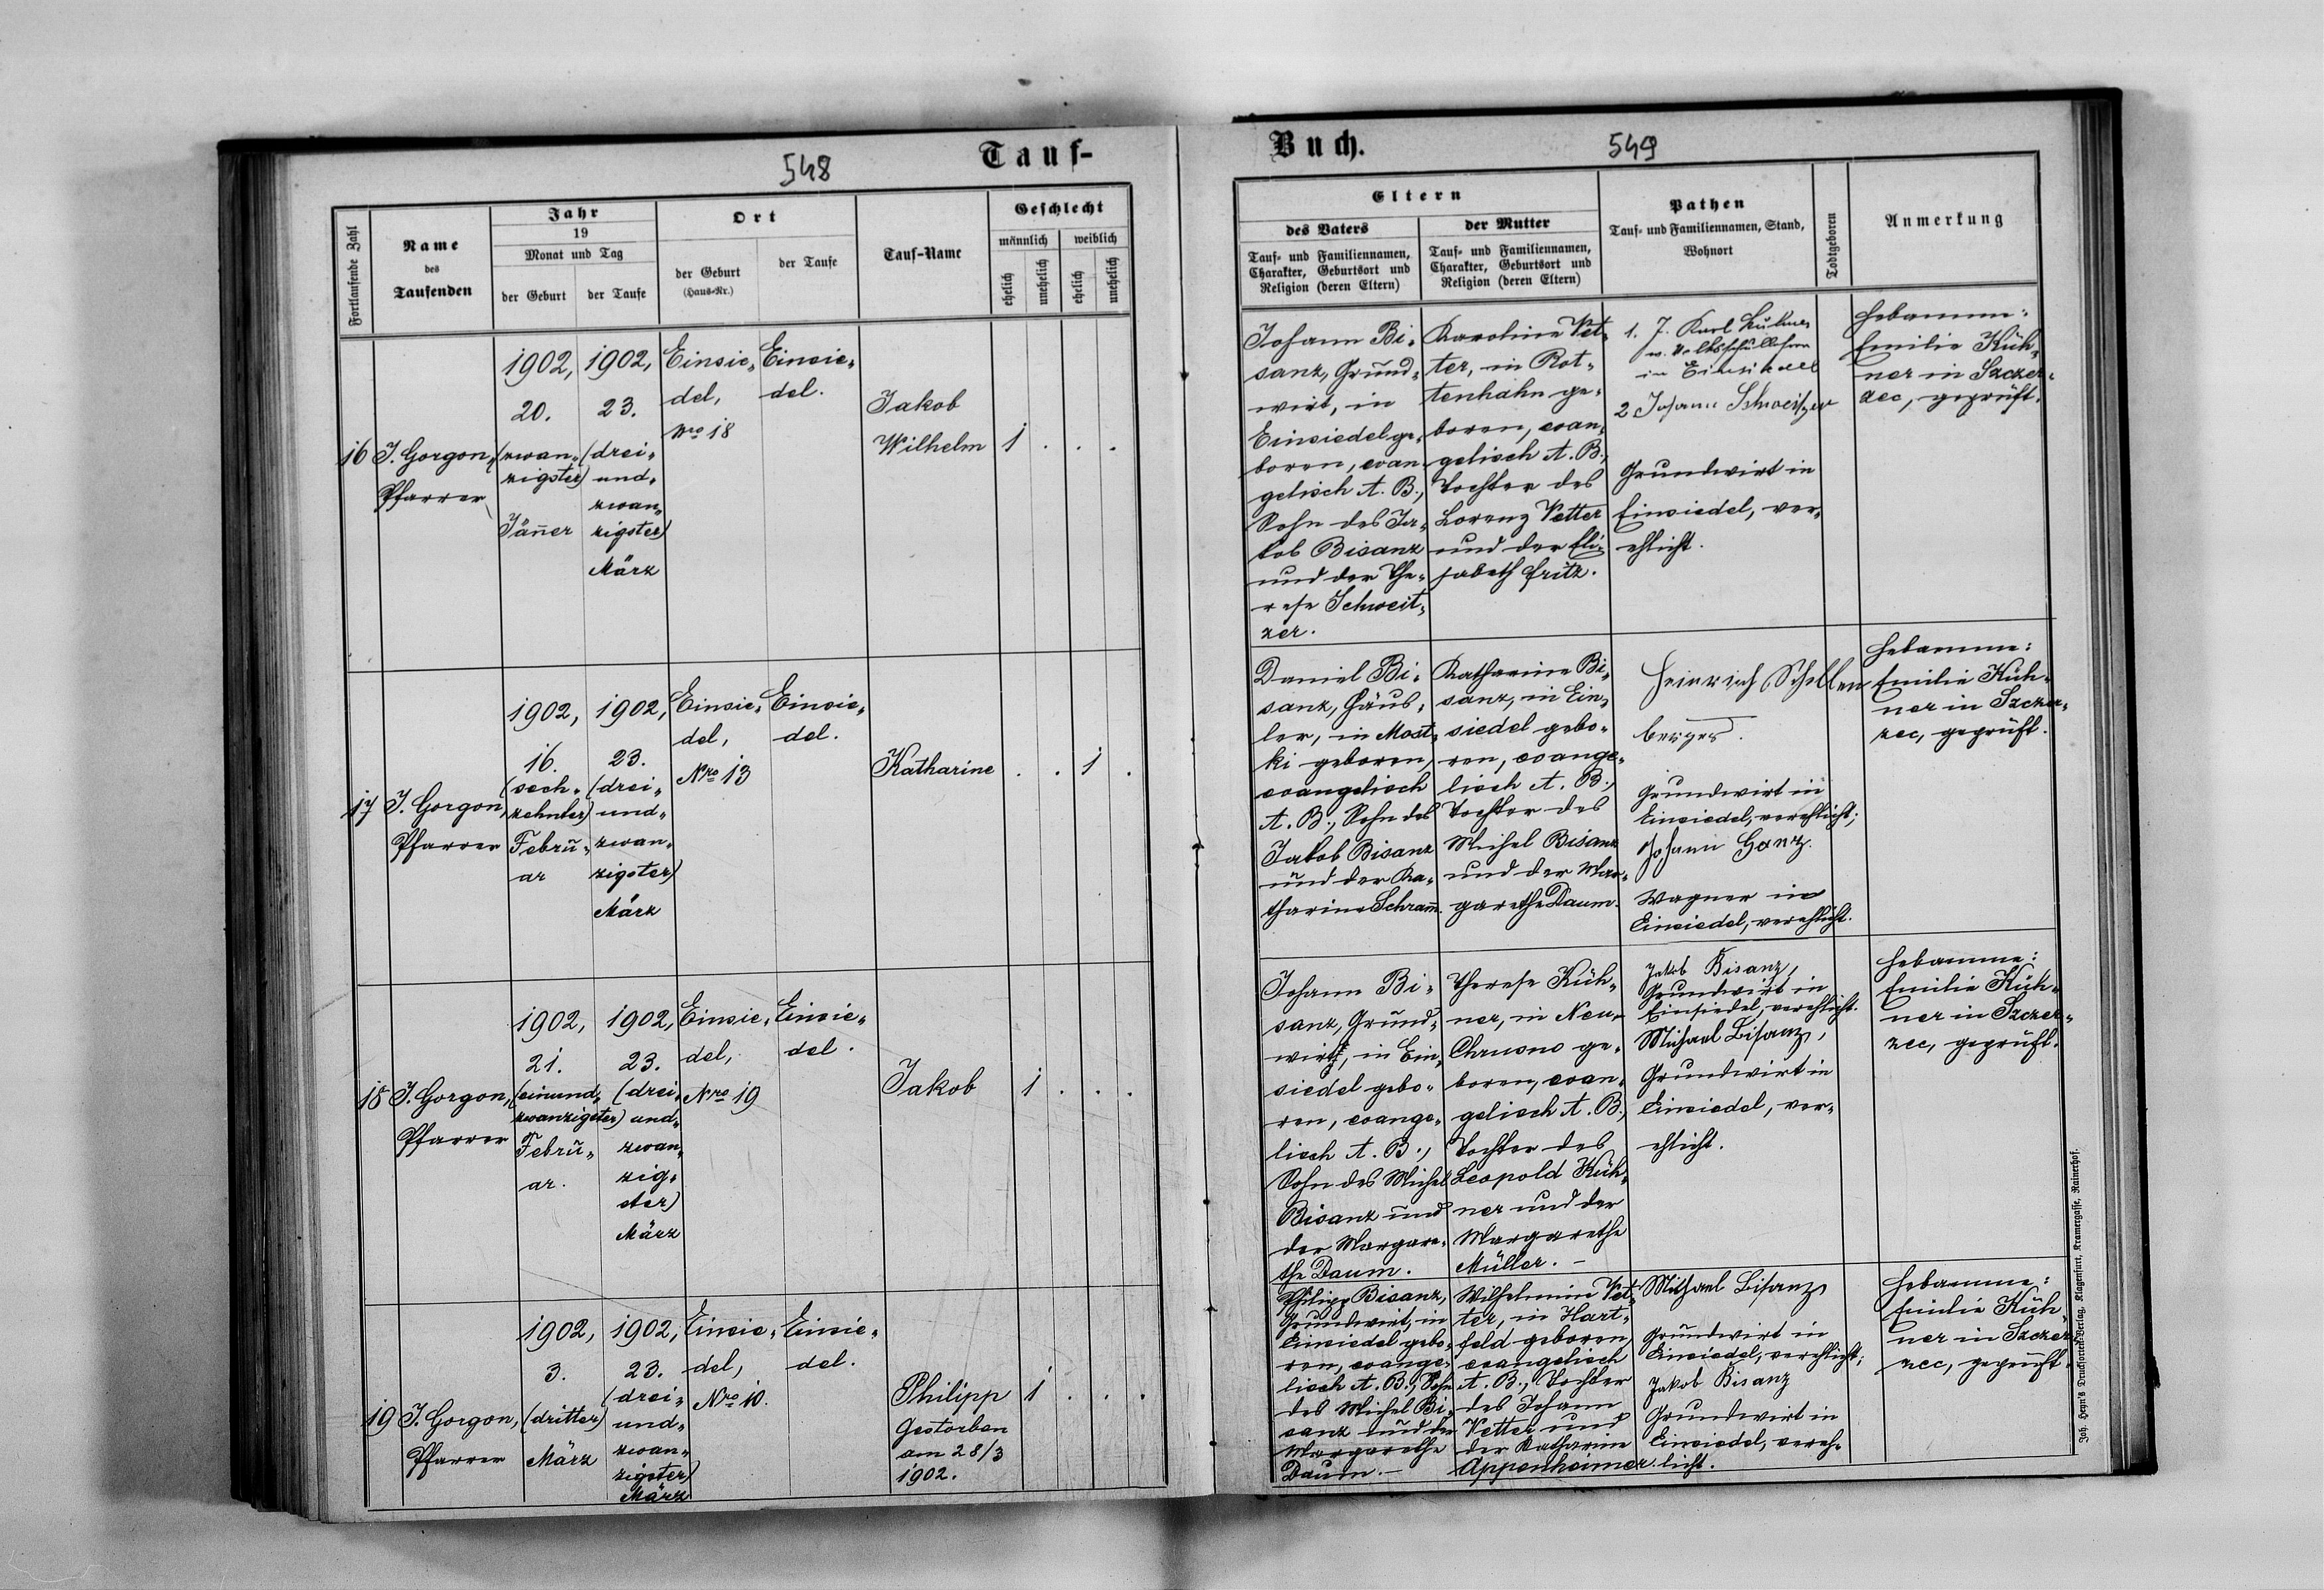 548
Tauf-
Fortlaufende Zahl
Name
des
Taufenden
Jahr
19
Monat und Tag
der Geburt
der Taufe
Ort
der Geburt
(Haus-Nr.)
der Taufe
Tauf-Name
Geschlecht
männlich
weiblich
ehelich
unehelich
ehelich
unehelich
16
J. Gorgon,
Pfarrer
1902,
20.
(zwan„
zigster)
Jäner
1902,
23.
(drei„
und„
zwan„
zigster)
März
Einsie„
del,
Nro 18
Einsie„
del.
Jakob
Wilhelm
1 . . .
17
J. Gorgon,
Pfarrer
1902,
16.
(sech„
zehnter)
Febru„
ar
1902,
23.
(drei„
und„
zwan„
zigster)
März
Einsie„
del,
Nro 13
Einsie„
del.
Katharine
. . 1 .
18
J. Gorgon,
Pfarrer
1902,
21.
(einund„
zwanzigster)
Febru„
ar.
1902,
23.
(drei„
und„
zwan„
zig„
ster)
März
Einsie„
del,
Nro 19
Einsie„
del.
Jakob
1 . . .
19
J. Gorgon,
Pfarrer
1902,
3.
(dritter)
März
1902,
23.
(drei„
und„
zwan„
zigster)
März
Einsie„
del,
Nro 10.
Einsie„
del.
Philipp
Gestorben
am 28/3
1902.
1 . . .
Buch.
549
Eltern
des Vaters
Tauf- und Familiennamen,
Charakter, Geburtsort und
Religion (deren Eltern)
der Mutter
Tauf- und Familiennamen,
Charakter, Geburtsort und
Religion (deren Eltern)
Pathen
Tauf- und Familiennamen, Stand,
Wohnort
Todtgeboren
Anmerkung
Johann Bi„
sanz, Grund„
wirt, in
Einsiedel ge„
boren, evan„
gelisch A. B.,
Sohn des Ja„
kob Bisanz
und der The„
rese Schweit„
zer.
Karoline Vet„
ter, in Rot„
tenhahn ge„
boren, evan„
gelisch A. B.,
Tochter des
Lorenz Vetter
und der Eli„
sabeth Fritz.
1. J. Karl
in Einsiedel
2 Johann Schweitzer
Grundwirt in
Einsiedel, ver„
ehlicht.
Hebamme:
Emilie Küh„
ner in Szczer„
zec, geprüft.
Daniel Bi„
sanz, Häus„
ler, in Most„
ki geboren,
evangelisch
A. B., Sohn des
Jakob Bisanz
und der Ka„
tharine Schram.
Katharine Bi„
sanz, in Ein„
siedel gebo„
ren, evange„
lisch A. B.,
Tochter des
Michel Bisanz
und der Mar„
garethe Daum.
Heinrich Schellen
berger.
Grundwirt in
Einsiedel, verehlicht;
Johann Ganz.
Wagner in
Einsiedel, verehlicht.
Hebamme:
Emilie Küh„
ner in Szczer„
zec, geprüft.
Johann Bi„
sanz, Grund„
wirt, in Ein„
siedel gebo„
ren, evange„
lisch A. B.,
Sohn des Michel
Bisanz und
der Margare„
the Daum.
Therese Küh„
ner, in Neu„
Chrusno ge„
boren, evan„
gelisch A. B.,
Tochter des
Leopold Küh„
ner und der
Margarethe
Müller. –
Jakob Bisanz,
Grundwirt in
Einsiedel, verehlicht.
Michael Bisanz,
Grundwirt in
Einsiedel, ver„
ehlicht.
Hebamme:
Emilie Küh„
ner in Szczer„
zec, geprüft.
Philipp Bisanz,
Grundwirt, in
Einsiedel gebo„
ren, evange„
lisch A. B., Sohn
des Michel Bi„
sanz und der
Margarethe
Daum. –
Wilhelmine Vet„
ter, in Hart„
feld geboren,
evangelisch
A. B., Tochter
des Johann
Vetter und
der Katharine
Appenheimer.
Michael Bisanz
Grundwirt in
Einsiedel, verehlicht;
Jakob Bisanz
Grundwirt in
Einsiedel, vereh„
licht.
Hebamme:
Emilie Küh„
ner in Szczer„
zec, geprüft.
Joh. Heyn's Drucksorten-Verlag, Klagenfurt, Kramergasse, Rainerhof.